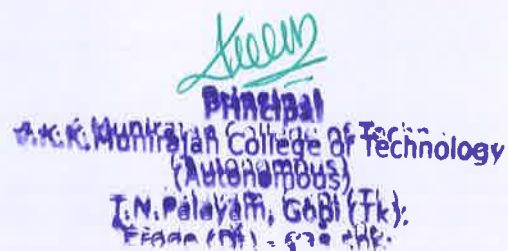 Principal
A.K.K. Munirajan College Of Technology
(Autonomous)
T.N.Palayam, Gobi (Tk);